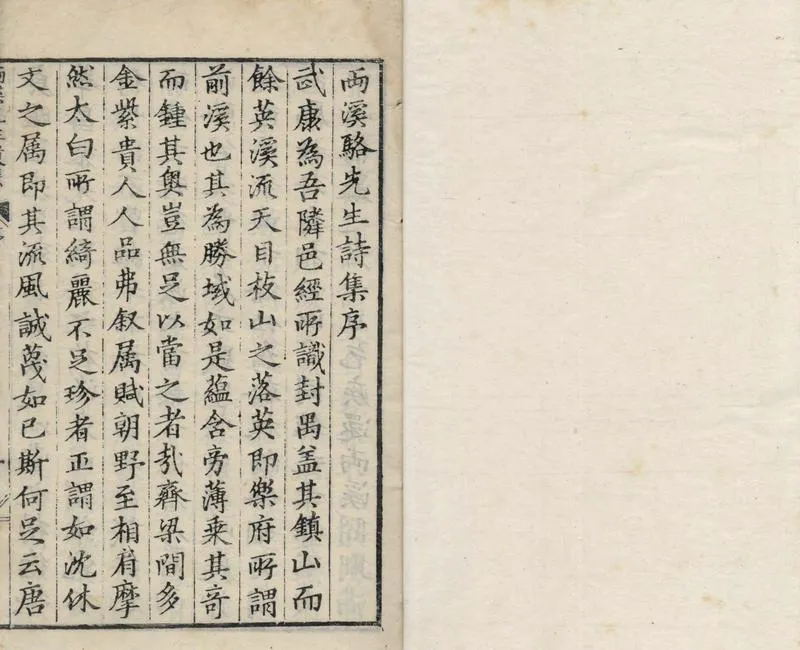 兩溪駱先生詩集序
武康為吾隣邑經所識封禺盖其鎮山而
餘英溪流天目枝山之落英即樂府所謂
前溪也其為勝域如是蘊含旁薄乗其竒
而鍾其奥豈無足以當之者㢤齊梁間多
金紫貴人人品弗叙属賦朝野至相肩摩
然太白所謂綺麗不足珍者正謂如沈休
文之属即其流風誠蔑如已斯何足云唐